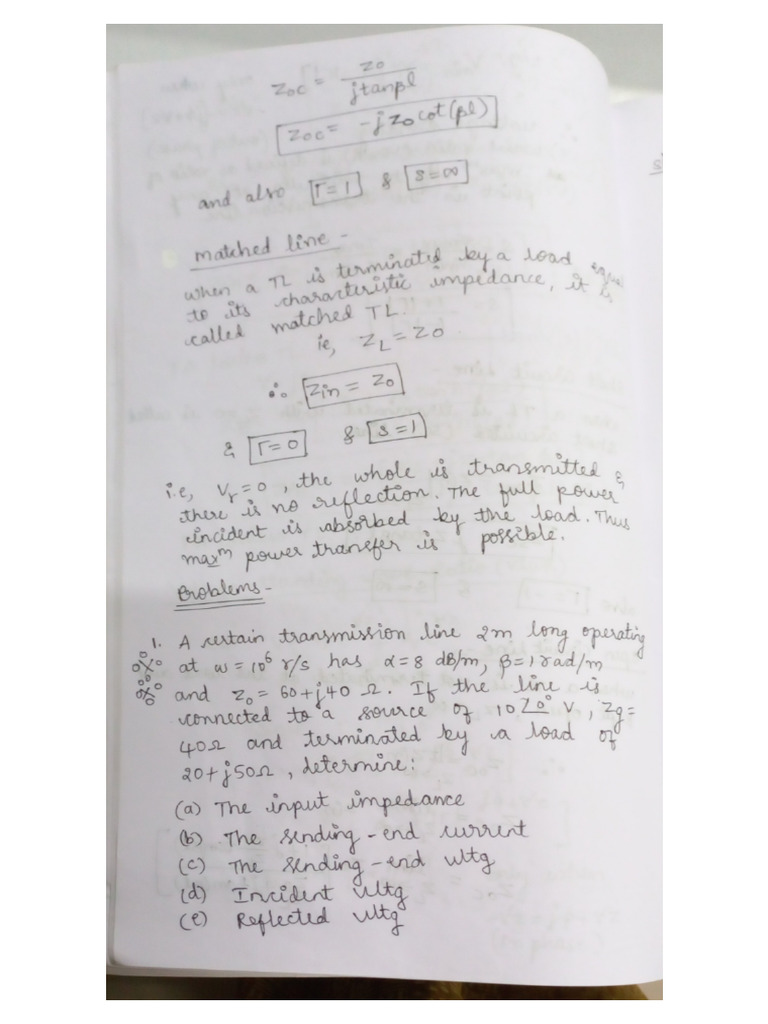 Zoc = Zo / jtanβl
Zoc = -j Zo cot(βl)
and also Γ=1 & s=∞
Matched line -
when a TL is terminated by a load equal
to its characteristic impedance, it is
called matched TL.
ie, ZL = Zo
∴ Zin = Zo
& Γ=0 & s=1
i.e, Vr=0, the whole is transmitted &
there is no reflection. The full power
incident is absorbed by the load. Thus
maxm power transfer is possible.
Problems -
1. A certain transmission line 2m long operating
at ω=10⁶ r/s has α=8 dB/m, β=1 rad/m
and Zo = 60+j40 Ω. If the line is
connected to a source of 10∠0° V, Zg=
40Ω and terminated by a load of
20+j50Ω, determine:
(a) The input impedance
(b) The sending-end current
(c) The sending-end vltg
(d) Incident vltg
(e) Reflected vltg